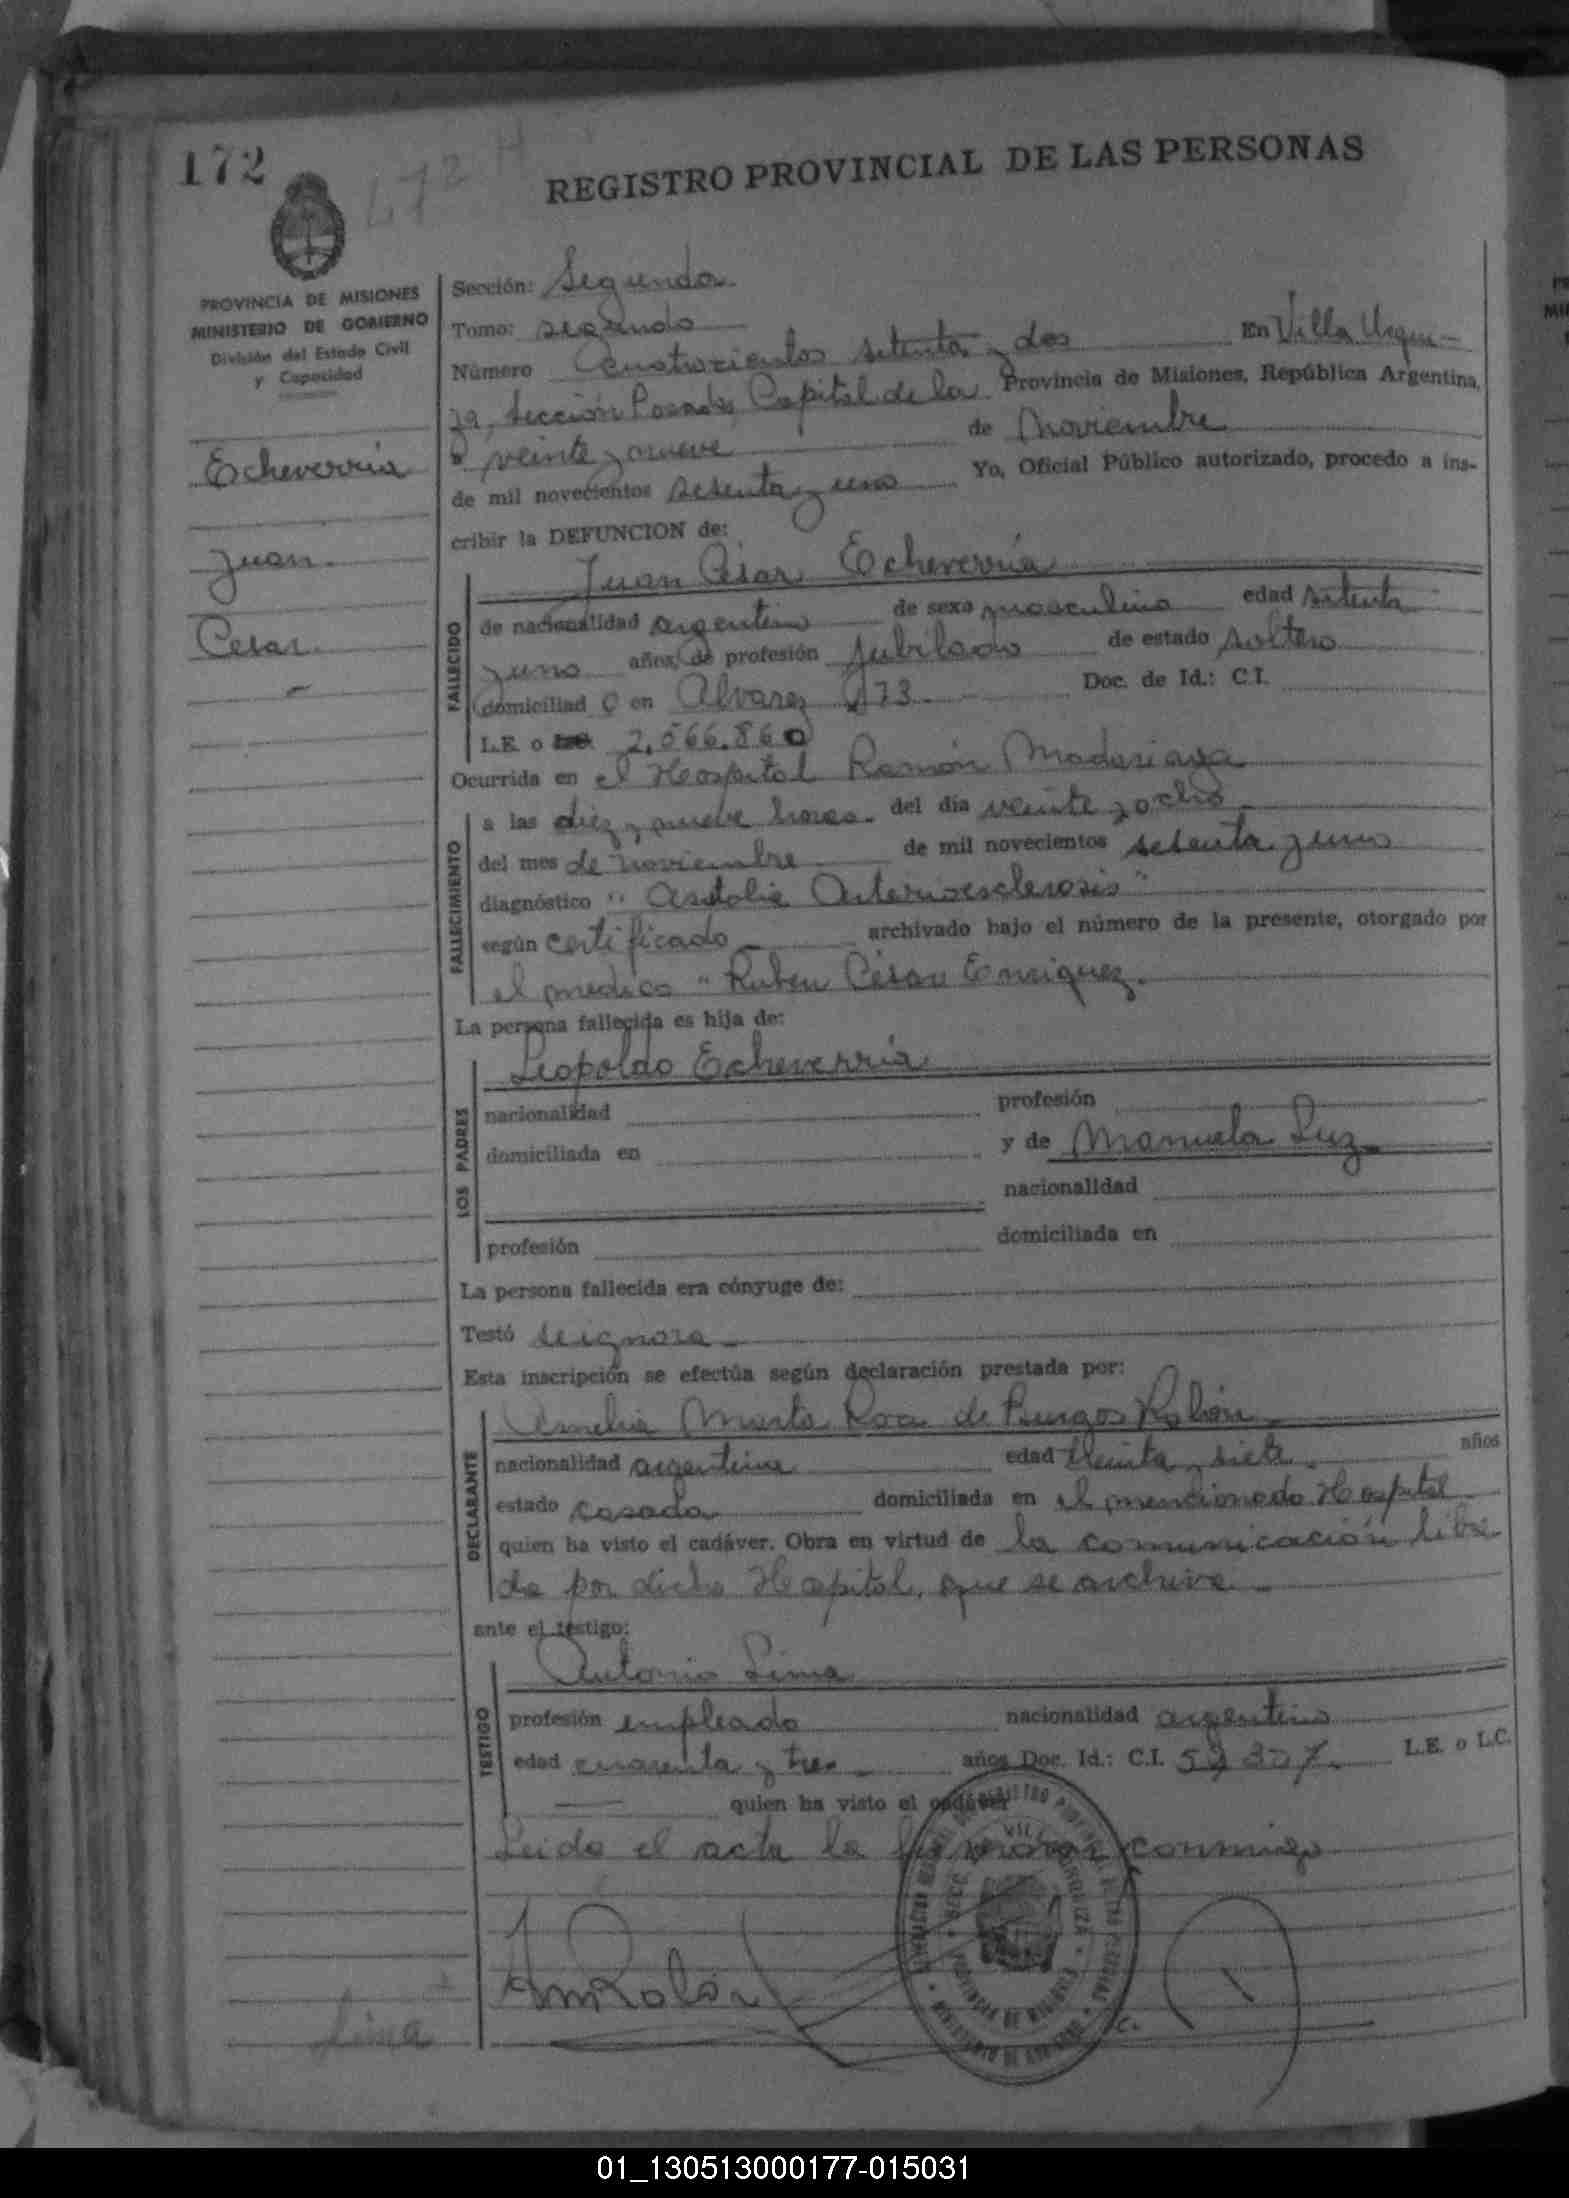 172
472
REGISTRO PROVINCIAL DE LAS PERSONAS
PROVINCIA DE MISIONES
MINISTERIO DE GOBIERNO
División del Estado Civil
y Capacidad
Echeverría
Juan
Cesar
Sección: Segunda
Tomo: segundo
Número Cuatrocientos setenta y dos En Villa Urqui-
za, Sección Posadas, Capital de la Provincia de Misiones, República Argentina,
a veinte y nueve de Noviembre
de mil novecientos setenta y uno Yo, Oficial Público autorizado, procedo a ins-
cribir la DEFUNCION de:
Juan César Echeverría
FALLECIDO
de nacionalidad argentino de sexo masculino edad setenta
y uno años, de profesión jubilado de estado soltero
domiciliad o en Alvarez 173 Doc. de Id.: C.I.
L.E. o 2.566.860
Ocurrida en el Hospital Ramón Madariaga
FALLECIMIENTO
a las diez y nueve horas. del día veinte y ocho
del mes de noviembre de mil novecientos setenta y uno
diagnóstico " Asistolia Arterioesclerosis"
según certificado archivado bajo el número de la presente, otorgado por
el medico "Ruben César Enriquez.
La persona fallecida es hija de:
LOS PADRES
Leopoldo Echeverría
nacionalidad profesión
domiciliada en y de Manuela Luz
nacionalidad
profesión domiciliada en
La persona fallecida era cónyuge de:
Testó se ignora
Esta inscripción se efectúa según declaración prestada por:
DECLARANTE
Amelia Marta Roa de Burgos Rolón
nacionalidad argentina edad treinta y siete años
estado casada domiciliada en el mencionado Hospital
quien ha visto el cadáver. Obra en virtud de la comunicación libra
da por dicho Hospital, que se archiva
ante el testigo:
TESTIGO
Antonio Lima
profesión empleado nacionalidad argentino
edad cuarenta y tres años Doc. Id.: C.I. L.E. o L.C.
quien ha visto el cadáver
Leida el acta la firman conmigo
Rolón
Lima
PROVINCIA DE MISIONES
01_130513000177-015031